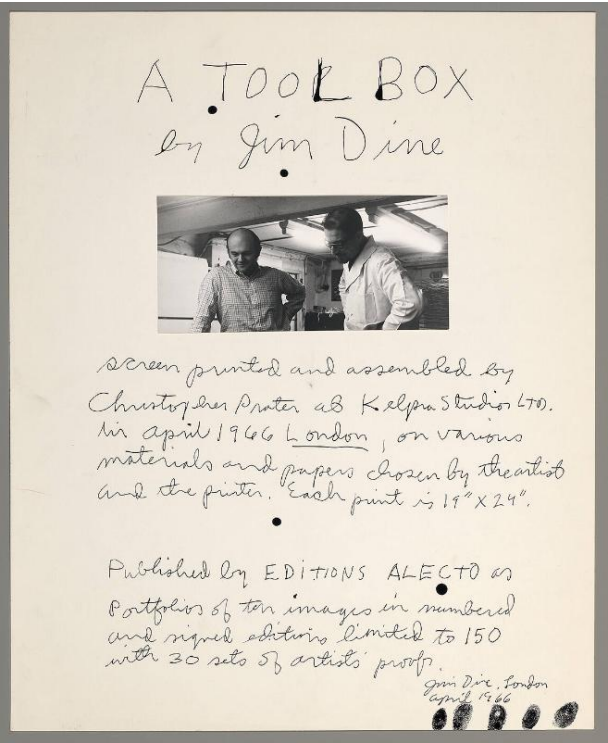 A TOOL BOX
by Jim Dine
screen printed and assembled by
Christopher Prater at Kelpra Studios LTD.
in april 1966 London, on various
materials and papers chosen by the artist
and the printer. Each print is 19" X 24".
Published by EDITIONS ALECTO as
Portfolios of ten images in numbered
and signed editions limited to 150
with 30 sets of artists' proofs.
Jim Dine, London
april 1966